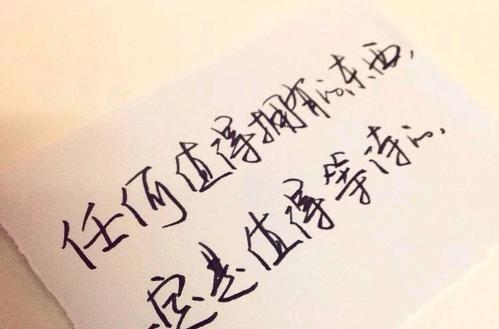 任何值得拥有的东西,
定是值得等待的.